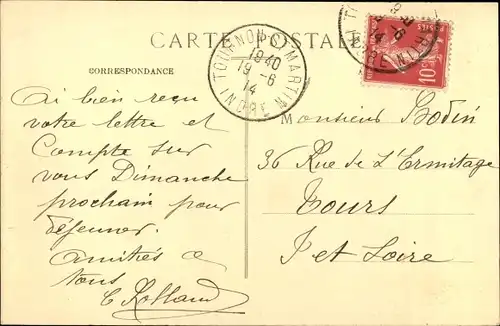 CARTE POSTALE
CORRESPONDANCE
TOURNON-ST-MARTIN
1840
19-6
14
INDRE
10c
Ai bien reçu
votre lettre et
Compte sur
vous Dimanche
prochain pour
déjeuner.
Amitiés à
tous
E Rolland
Monsieur Bodin
36 Rue de L'Ermitage
Tours
I et Loire